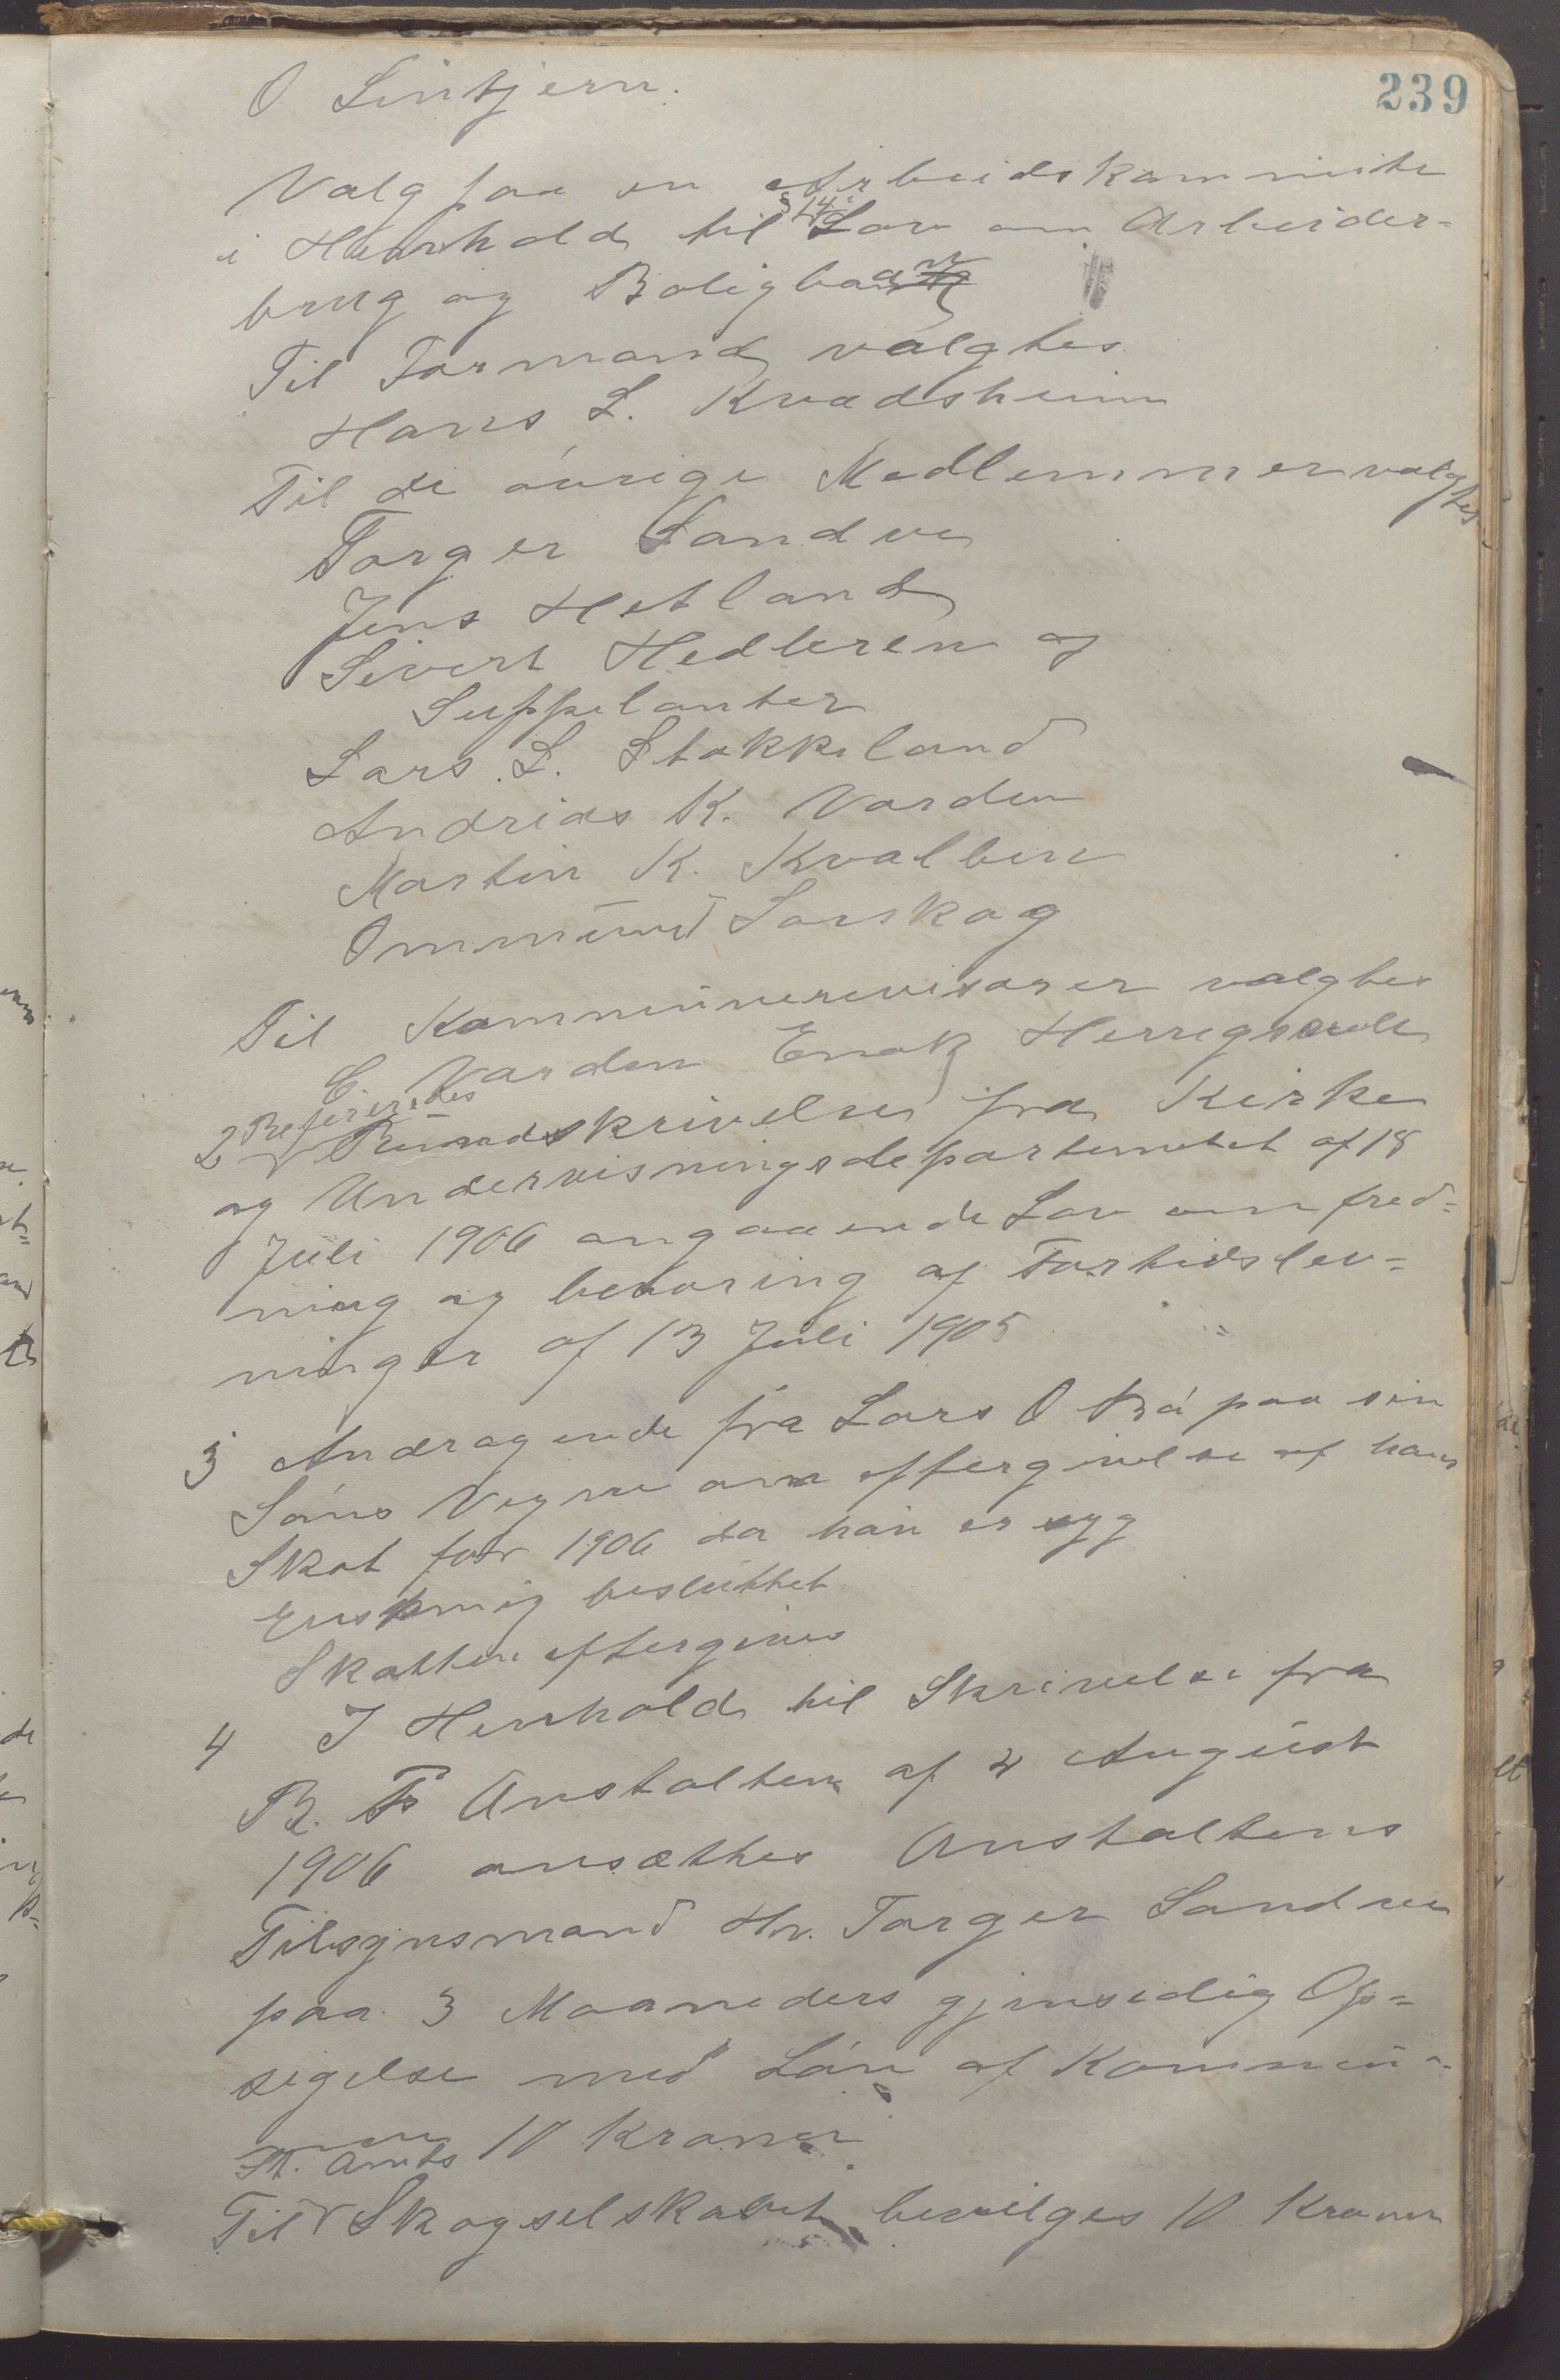 239
O Lintjern.
Valg paa en Arbeidskommite
i Henhold til § 14 i Lov om Arbeider-
brug og Boligbank
Til Formand valgtes
Hans L. Kvadsheim
Til de øvrige Medlemmer valgtes
Torger Sandve
Jens Hetland
Sivert Hedleren og
Suppelanter
Lars L. Stokkeland
Andrias K. Varden
Martin K. Kvalbein
Ommund Lorskog
Til Kommunerevisorer valgtes
E. Varden Enok
2 Refereredes Rundskrivelse fra Kirke
og Undervisningsdepartemtet af 18
Juli 1906 angaaende Lov om fred-
ning og bevaring af Fortidslev-
ninger af 13 Juli 1905
3 Andragende fra Lars O Bø paa sin
Søns Vegne om eftergivelse af hans
Skat for 1906 da han er syg
Enstemig besluttet
Skatten eftergives
4 I Henhold til Skrivelse fra
B. F Anstalten af 4 August
1906 ansættes Anstaltens
Tilsynsmand Hr. Torger Sandve
paa 3 Maaneders gjensidig Op-
sigelse med Løn af Kommu-
nen 10 Kroner.
St. Amts
Til Skogselskabet bevilges 10 Kroner